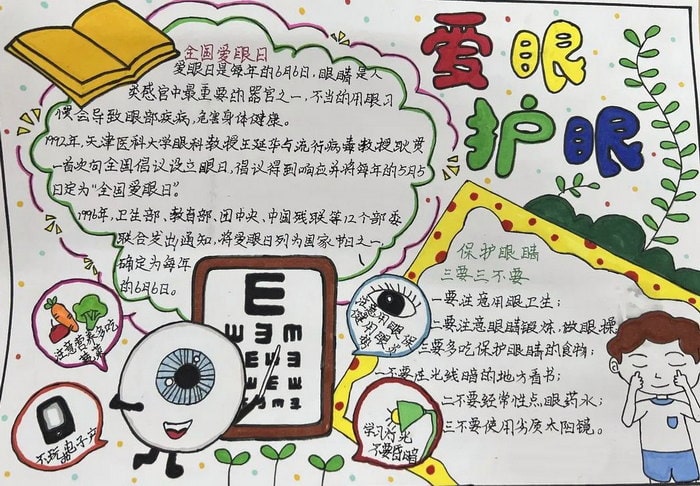 爱眼
护眼
全国爱眼日
爱眼日是每年的6月6日,眼睛是人
类感官中最重要的器官之一,不当的用眼习
惯会导致眼部疾病,危害身体健康。
1992年,天津医科大学眼科教授王延华与流行病毒教授耿贯
一首次向全国倡议设立眼日,倡议得到响应并将每年的5月5
日定为“全国爱眼日”。
1996年,卫生部、教育部、团中央、中国残联等12个部委
联合发出通知,将爱眼日列为国家节日之一
确定为每年
的6月6日。
E
注意营养多吃
不玩电子产
注意用眼保
学习灯光
不要昏暗
保护眼睛
三要三不要
一要注意用眼卫生;
二要注意眼睛锻炼,做眼操
三要多吃保护眼睛的食物;
一不要在光线暗的地方看书;
二不要经常性点眼药水;
三不要使用劣质太阳镜。